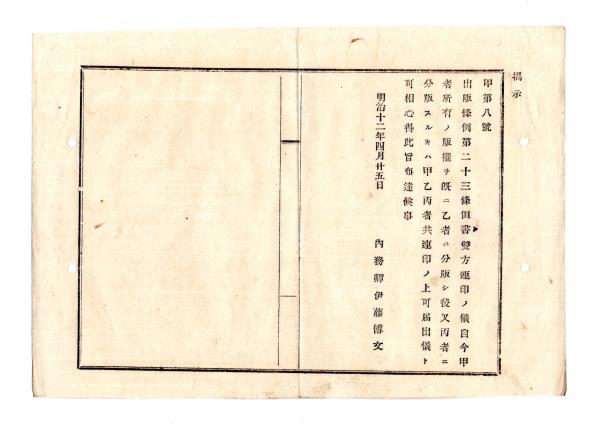 揭示
甲第八號
出版條例第二十三條但書雙方連印ノ儀自今甲
者所有ノ版權ヲ既ニ乙者ニ分版シ後又丙者ニ
分版スルキハ甲乙丙者共連印ノ上可屆出儀ト
可相心得此旨布達候事
明治十二年四月廿五日
內務卿伊藤博文